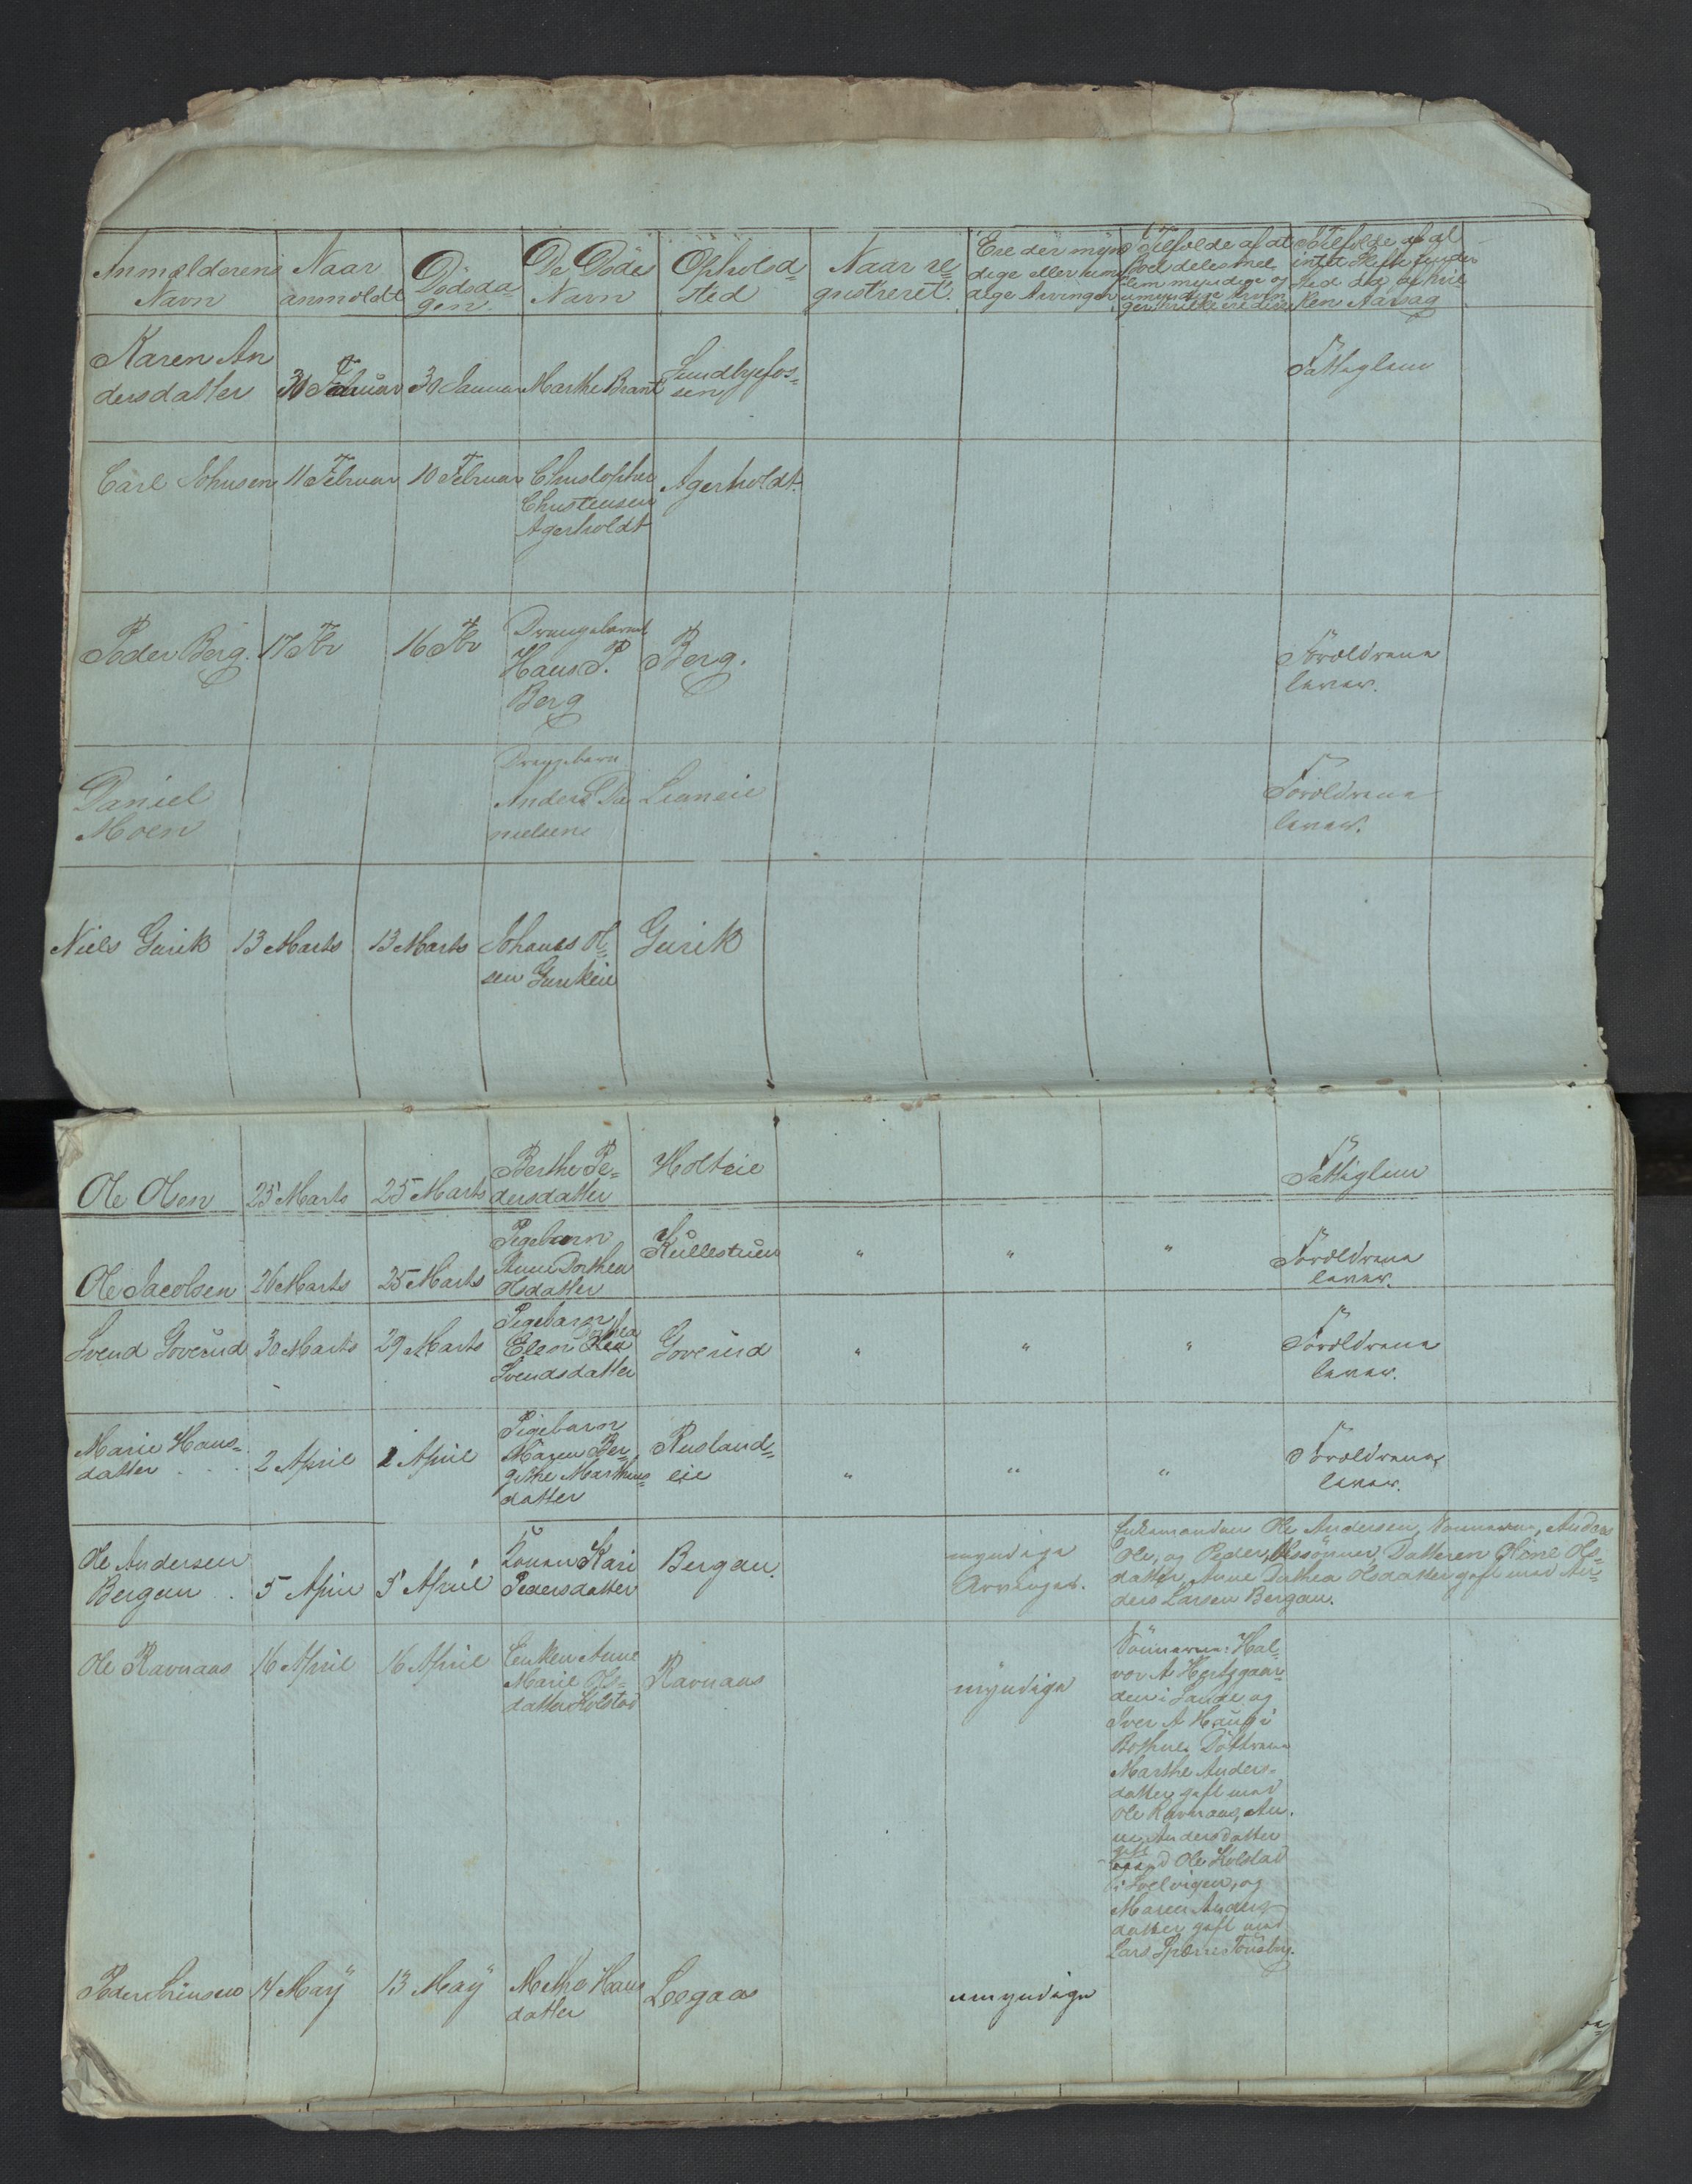 Anmelderens Navn
Naar anmeldt
Dödsdagen
De Dödes Navn
Opholdsted
Naar registreret.
Ere der myndige eller umyndige Arvinger
I Tilfelde af at
I Tilfelde af at intet Skifte
Sted da af hvilken Aarsag
Karen An
dersdatter
30 Januar
Marthe Brant
Lundbyefos=
sen
Fattiglem
Carl Johnsen 11 Februar 10 Februar Christopher Agerholdt
Christensen
Agerholdt
Peder Berg. 17 Fbr 16 Fbr
Drengebarnet
Hans P.
Berg
Berg.
Foröldrene
lever.
Daniel
Moen
Drengebarn
Anders Da
nielsen
Lianeie
Foröldrene
lever.
Niels Gurik 13 Marts 13 Marts Johanes Ol= Gurik
sen Gurikeie
Ole Olsen 25 Marts 25 Marts
Berthe Pe=
dersdatter
Holteie
Fattiglem
Ole Jacobsen 26 Marts 25 Marts
Pigebarn
Anne Dorthea
Olsdatter
Kullestuen " " "
Foröldrene
lever.
Svend Goverud 30 Marts 29 Marts
Pigebarn
Elen
Svendsdatter
Goverud " " "
Foröldrene
lever.
Marie Hans=
datter 2 April 1 April
Pigebarn
Maren Ber=
githe Marthins=
datter
Rusland=
eie " " "
Foröldrene
lever.
Ole Andersen
Bergan 5 April 5 April
Konen Kari
Pedersdatter
Bergan.
myndige
Arvinger.
Enkemanden Ole Andersen, Sönnerne, Anders
Ole, og Peder, Olssönner, Datteren Oline Ols=
datter, Anne Dathea Olsdatter gift med An=
ders Larsen Bergan.
Ole Ravnaas 16 April 16 April
Enken Anne
Marie Ols=
datter Holstad
Ravnaas
myndige
Sönnerne: Hal=
vor A Hertzgaar=
den i Sande og
Iver A Haug i
Bothne. Döttrene
Marthe Anders=
datter gift med
Ole Ravnaas, An=
ne Andersdatter
gift
med Ole Holstad
i Svelvigen, og
Maren Anders=
datter gift med
Lars Tönsberg.
Peder 14 May 13 May
Methe Hans
datter
Leegaas
umyndige